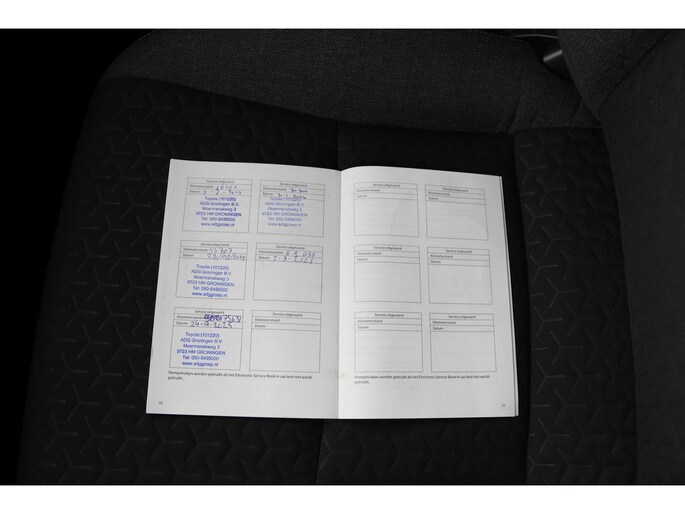 Service uitgevoerd
Kilometerstand
Datum
Toyota (101220)
ADG Groningen B.V.
Moermanskweg 3
9723 HM GRONINGEN
Tel: 050-5495000
www.adggroep.nl
Service uitgevoerd
Kilometerstand
Datum
Toyota (101220)
ADG Groningen B.V.
Moermanskweg 3
9723 HM GRONINGEN
Tel: 050-5495000
www.adggroep.nl
Service uitgevoerd
Kilometerstand
Datum
Toyota (101220)
ADG Groningen B.V.
Moermanskweg 3
9723 HM GRONINGEN
Tel: 050-5495000
www.adggroep.nl
Service uitgevoerd
Kilometerstand
Datum
Service uitgevoerd
Kilometerstand 75631
Datum 24-9-2025
Toyota (101220)
ADG Groningen B.V.
Moermanskweg 3
9723 HM GRONINGEN
Tel: 050-5495000
www.adggroep.nl
Service uitgevoerd
Kilometerstand
Datum
Stempelvakjes worden gebruikt als het Electronic Service Book in uw land niet wordt
gebruikt.
Service uitgevoerd
Kilometerstand
Datum
Service uitgevoerd
Kilometerstand
Datum
Service uitgevoerd
Kilometerstand
Datum
Service uitgevoerd
Kilometerstand
Datum
Service uitgevoerd
Kilometerstand
Datum
Service uitgevoerd
Kilometerstand
Datum
Stempelvakjes worden gebruikt als het Electronic Service Book in uw land niet wordt
gebruikt.